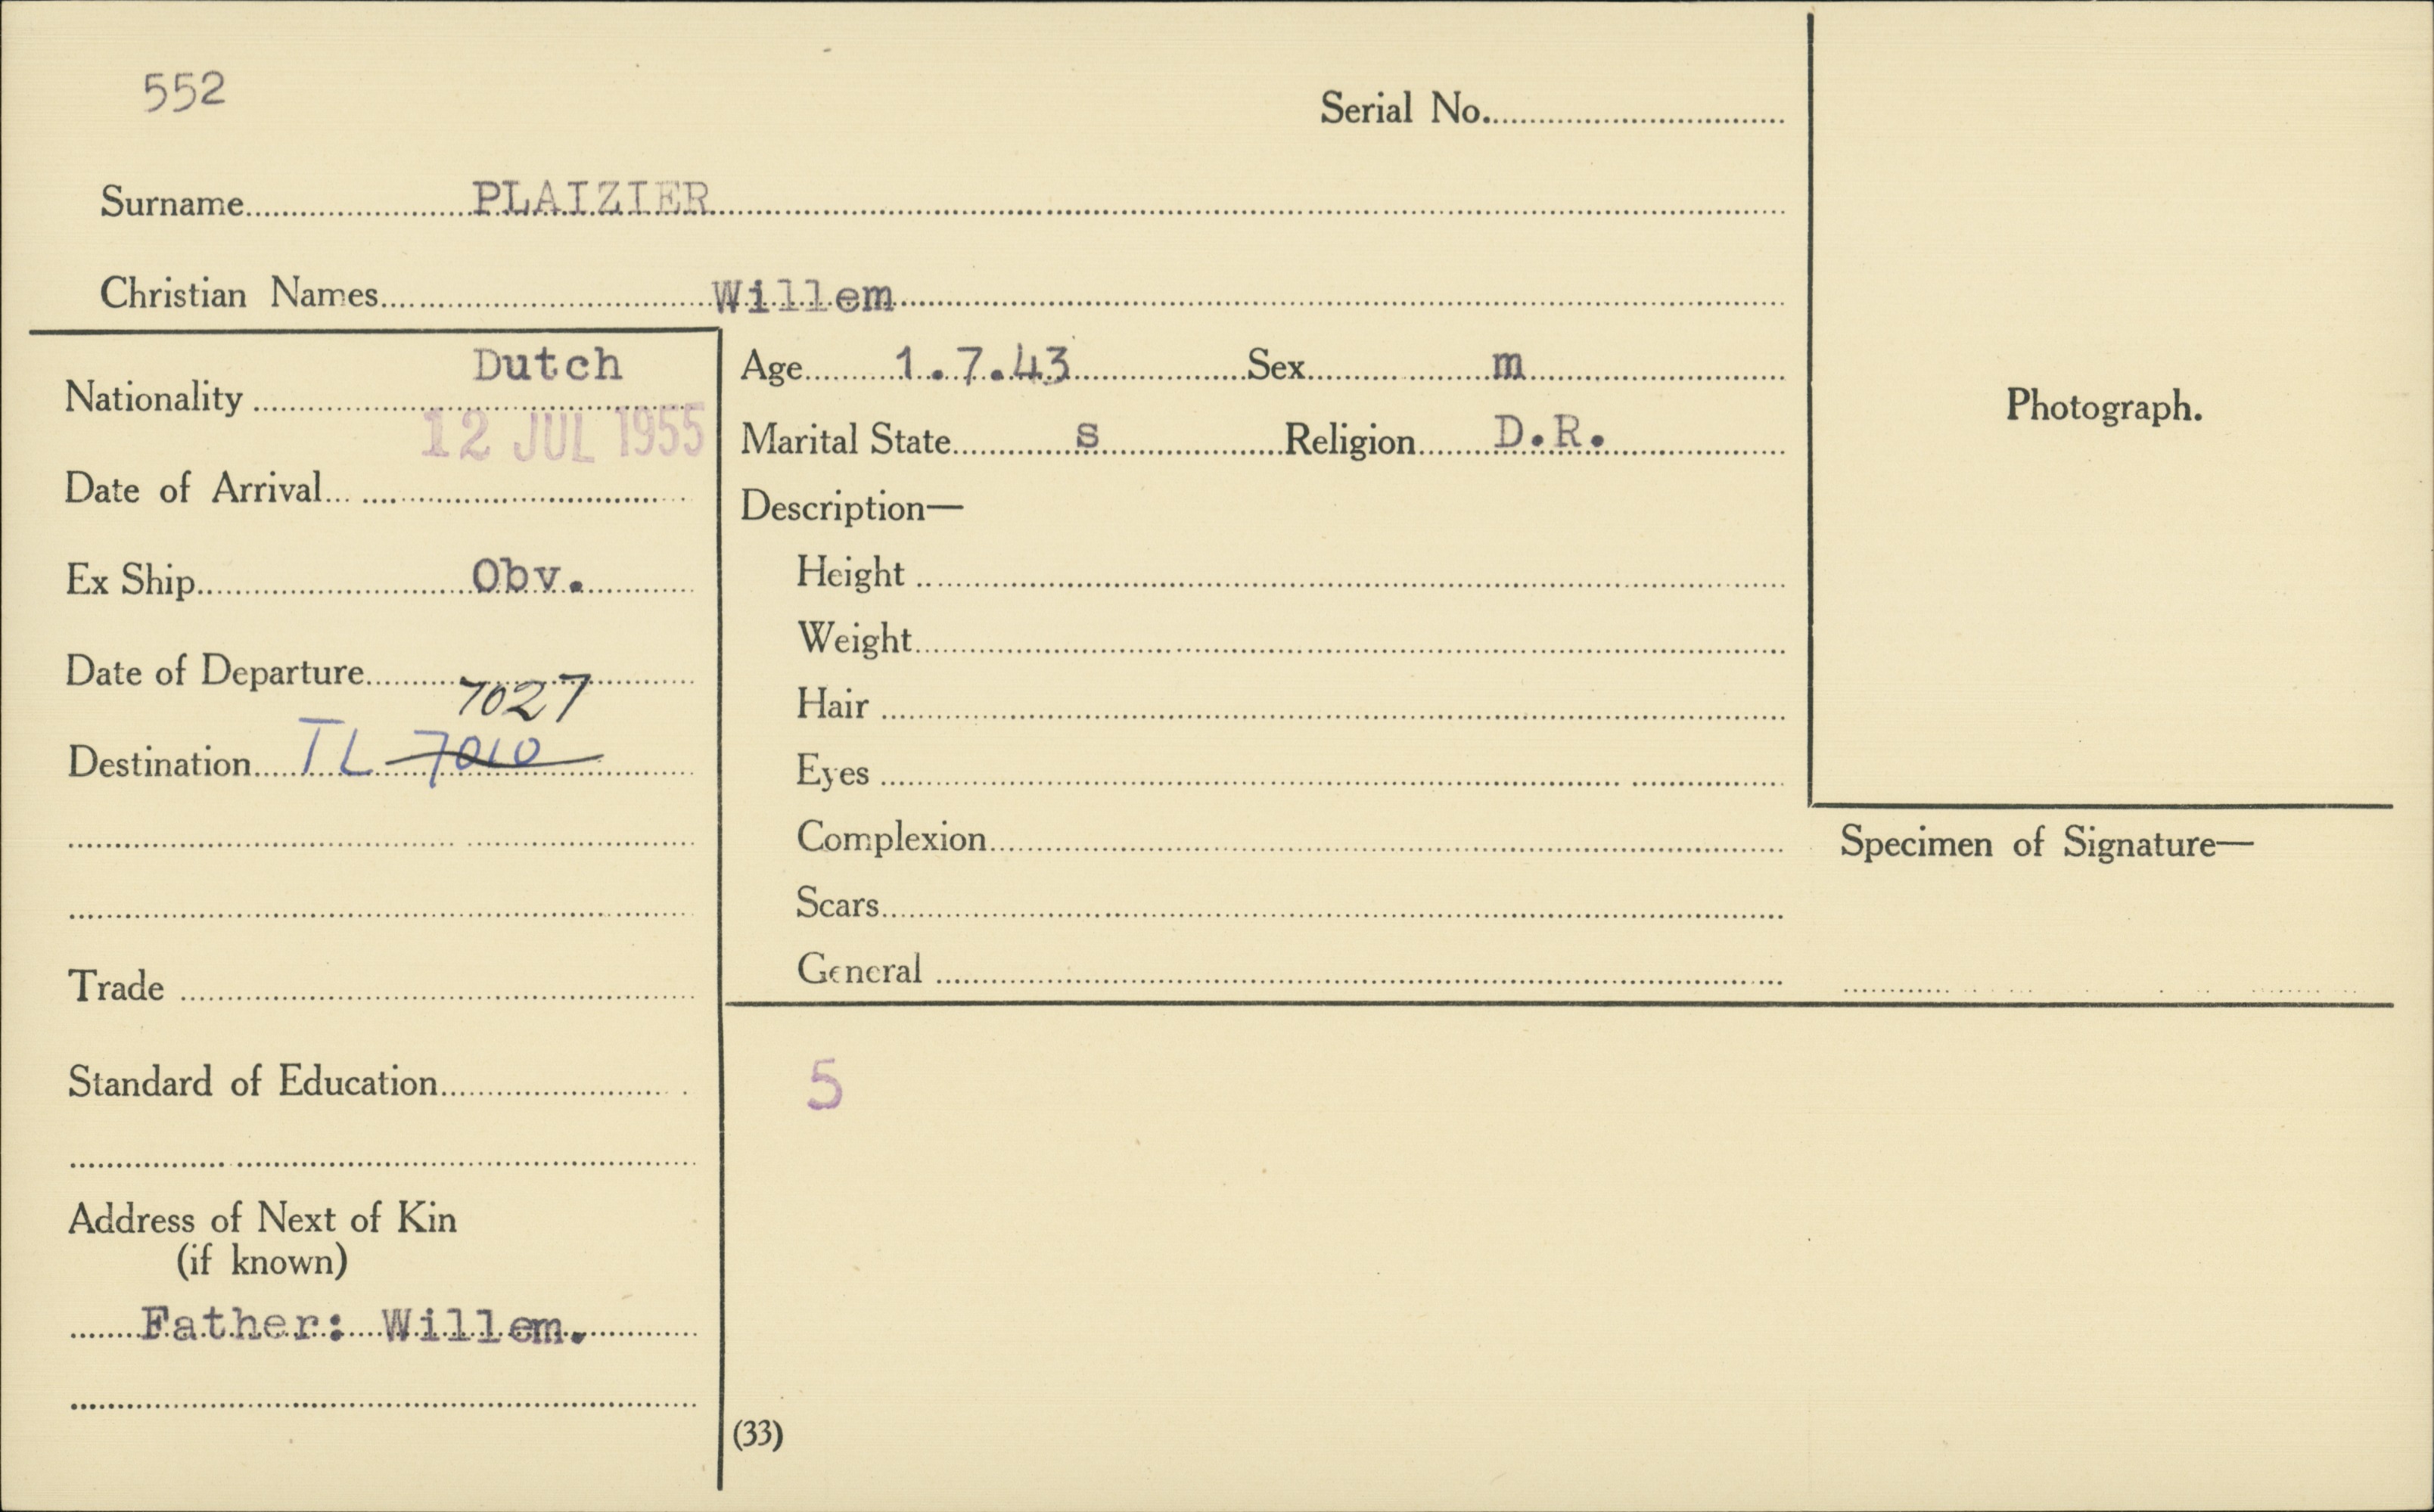 552
Serial No.
Surname PLAIZIER
Christian Names Willem
Nationality Dutch
12 JUL 1955
Date of Arrival
Ex Ship Obv.
Date of Departure
7027
Destination TL 7010
Trade
Standard of Education
Address of Next of Kin
(if known)
Father: Willem.
Age 1.7.43 Sex m
Marital State s Religion D.R.
Description—
Height
Weight
Hair
Eyes
Complexion
Scars
General
5
(33)
Photograph.
Specimen of Signature—